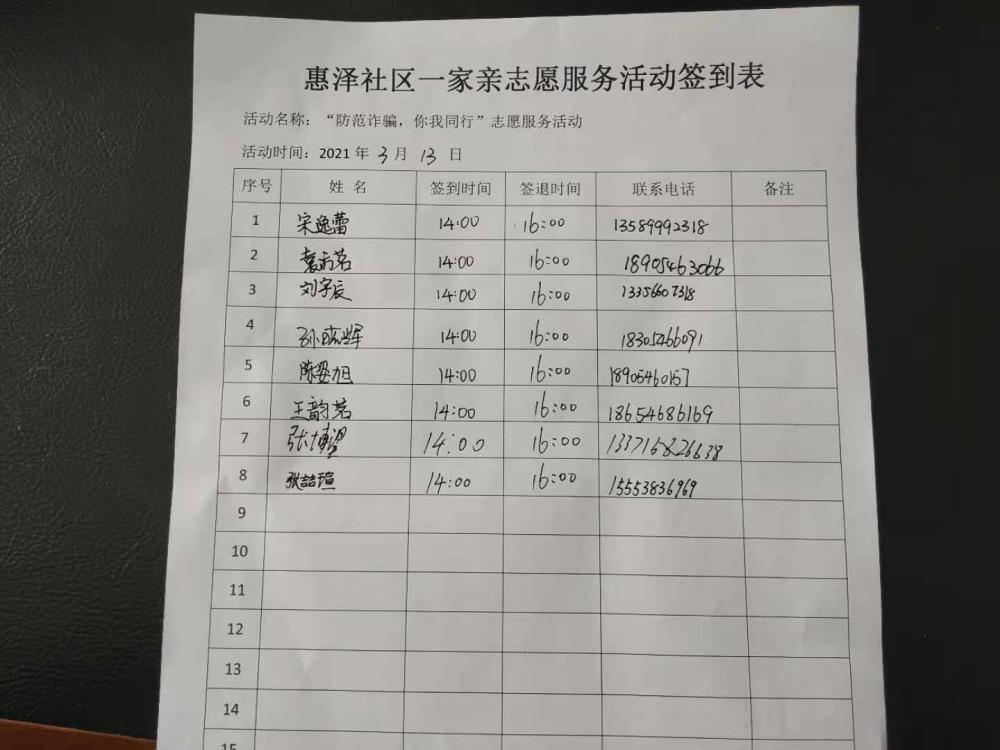 惠泽社区一家亲志愿服务活动签到表
活动名称：“防范诈骗，你我同行”志愿服务活动
活动时间：2021 年 3 月 13 日
序号 姓 名 签到时间 签退时间 联系电话 备注
1 宋逸蕾 14:00 16:00 13589992318
2 14:00 16:00 18905463066
3 刘宇辰 14:00 16:00 13356607318
4 14:00 16:00 18305466091
5 陈姿旭 14:00 16:00 18905460157
6 王韵茗 14:00 16:00 18654686169
7 张博 14:00 16:00
8 张喆瑄 14:00 16:00 15553836969
9
10
11
12
13
14
15